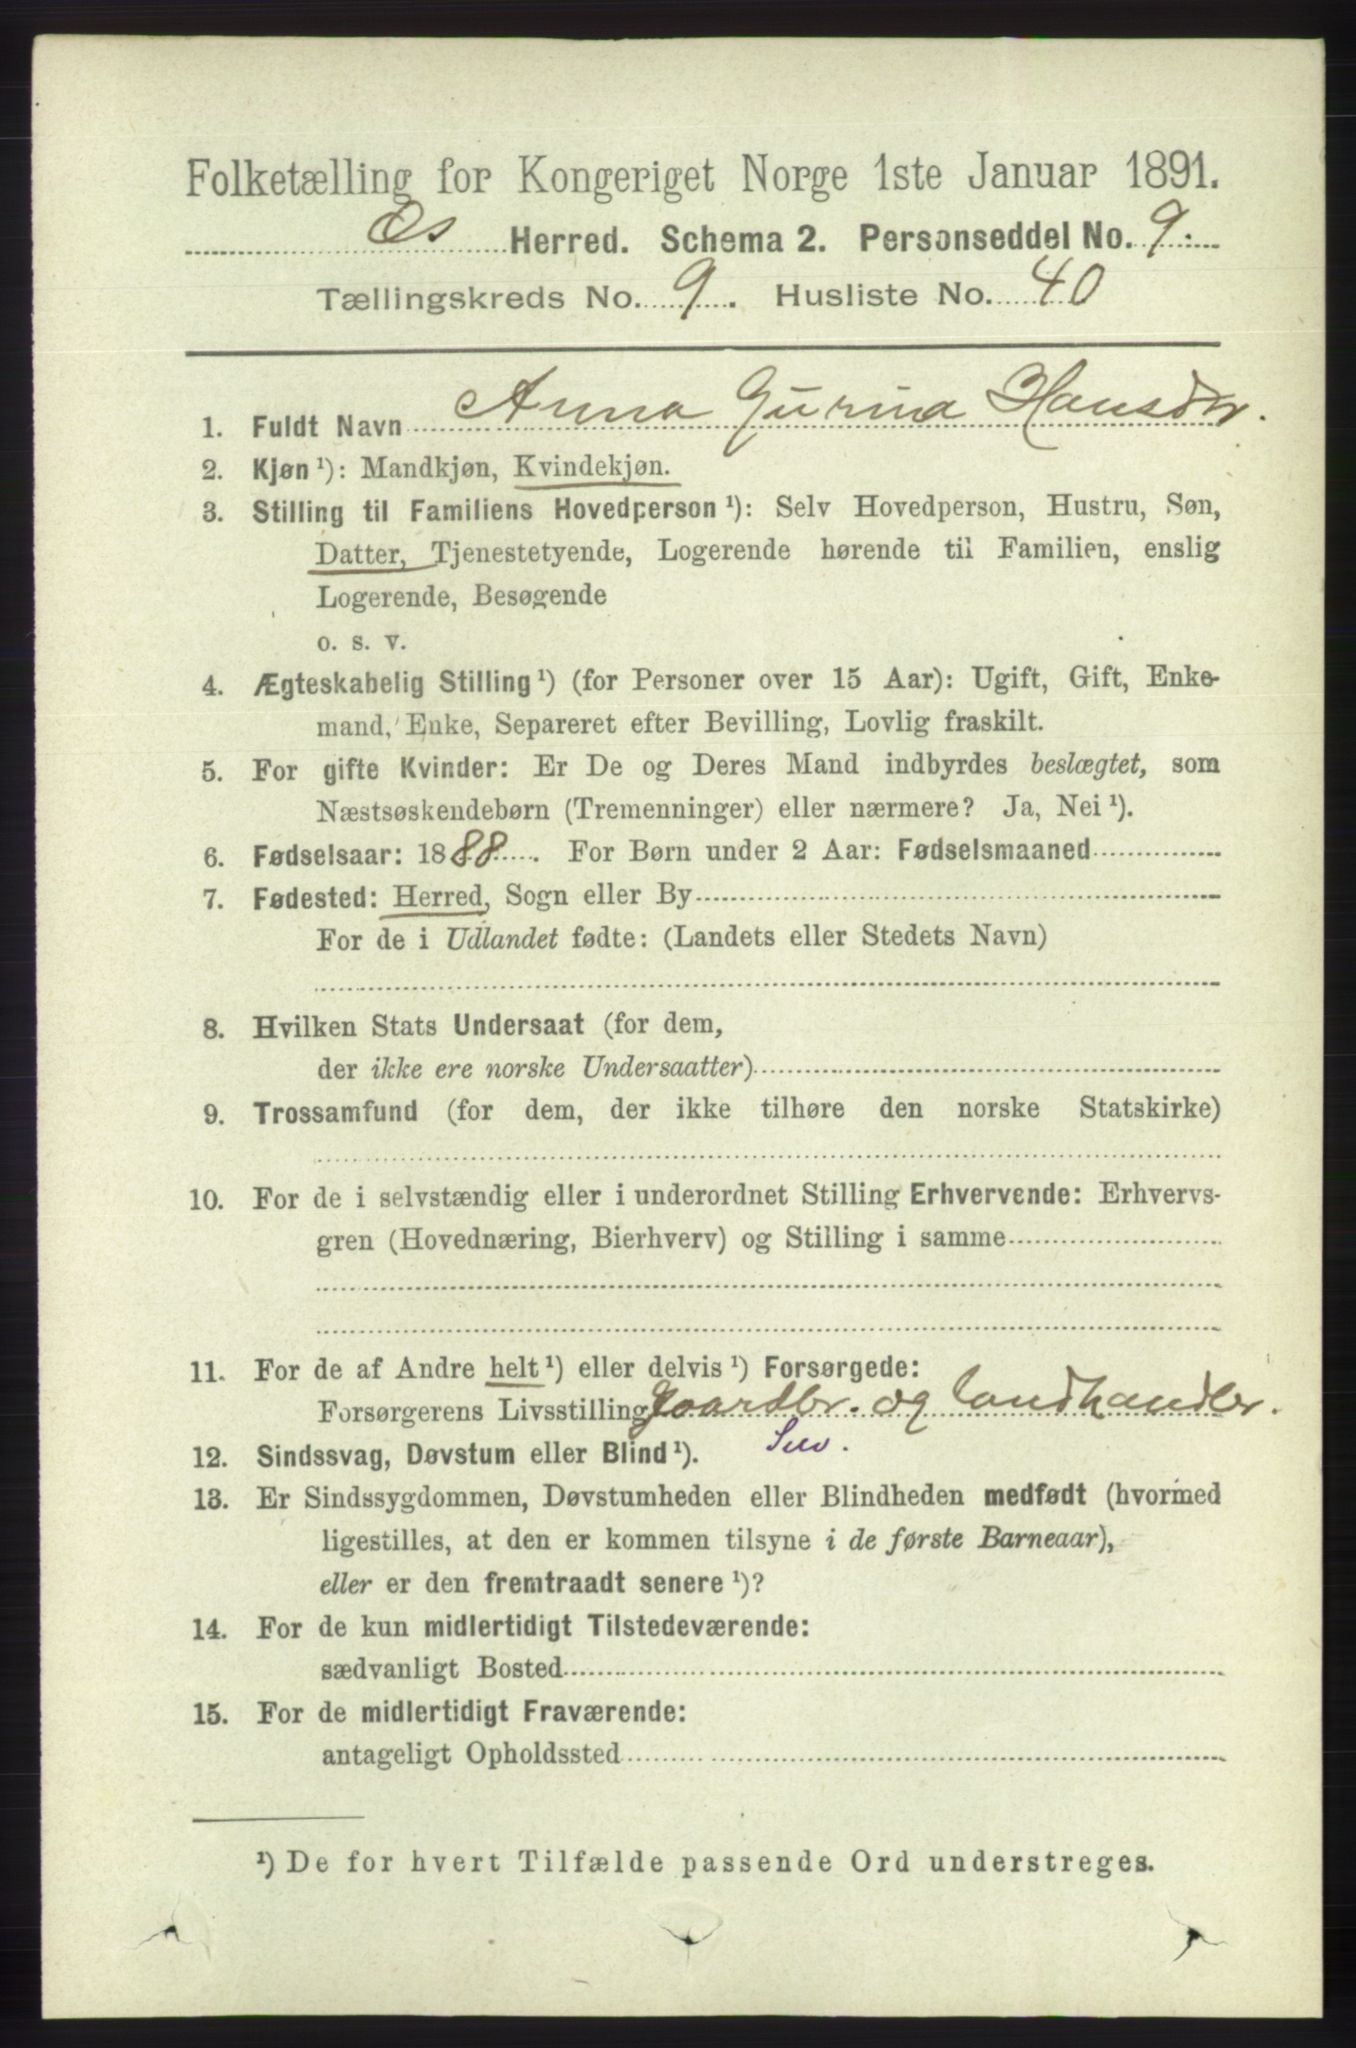 Folketælling for Kongeriget Norge 1ste Januar 1891.
Os Herred. Schema 2. Personseddel No. 9.
Tællingskreds No. 9. Husliste No. 40
1. Fuldt Navn Anna Gurina Hansdtr.
2. Kjøn ¹): Mandkjøn, Kvindekjøn.
3. Stilling til Familiens Hovedperson ¹): Selv Hovedperson, Hustru, Søn,
Datter, Tjenestetyende, Logerende hørende til Familien, enslig
Logerende, Besøgende
o. s. v.
4. Ægteskabelig Stilling ¹) (for Personer over 15 Aar): Ugift, Gift, Enke-
mand, Enke, Separeret efter Bevilling, Lovlig fraskilt.
5. For gifte Kvinder: Er De og Deres Mand indbyrdes beslægtet, som
Næstsøskendebørn (Tremenninger) eller nærmere? Ja, Nei ¹).
6. Fødselsaar: 1888. For Børn under 2 Aar: Fødselsmaaned
7. Fødested: Herred, Sogn eller By
For de i Udlandet fødte: (Landets eller Stedets Navn)
8. Hvilken Stats Undersaat (for dem,
der ikke ere norske Undersaatter)
9. Trossamfund (for dem, der ikke tilhøre den norske Statskirke)
10. For de i selvstændig eller i underordnet Stilling Erhvervende: Erhvervs-
gren (Hovednæring, Bierhverv) og Stilling i samme
11. For de af Andre helt ¹) eller delvis ¹) Forsørgede:
Forsørgerens Livsstilling Gaardbr. og landhandler.
12. Sindssvag, Døvstum eller Blind ¹).
13. Er Sindssygdommen, Døvstumheden eller Blindheden medfødt (hvormed
ligestilles, at den er kommen tilsyne i de første Barneaar),
eller er den fremtraadt senere ¹)?
14. For de kun midlertidigt Tilstedeværende:
sædvanligt Bosted
15. For de midlertidigt Fraværende:
antageligt Opholdssted
¹) De for hvert Tilfælde passende Ord understreges.